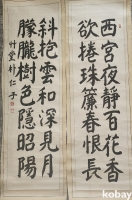 西宮夜靜百花香
欲捲珠簾春恨長
斜抱雲和深見月
朦朧樹色隱昭陽
kobay